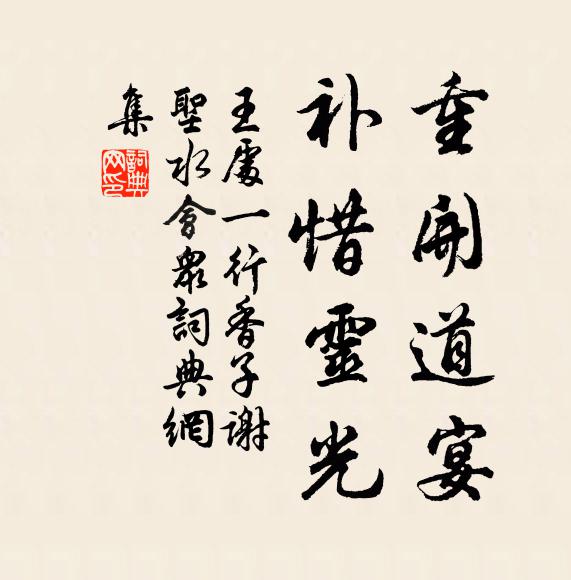 重開道宴
补惜靈光
王處一行香子谢
聖水會衆詞典網
集
詞典网印